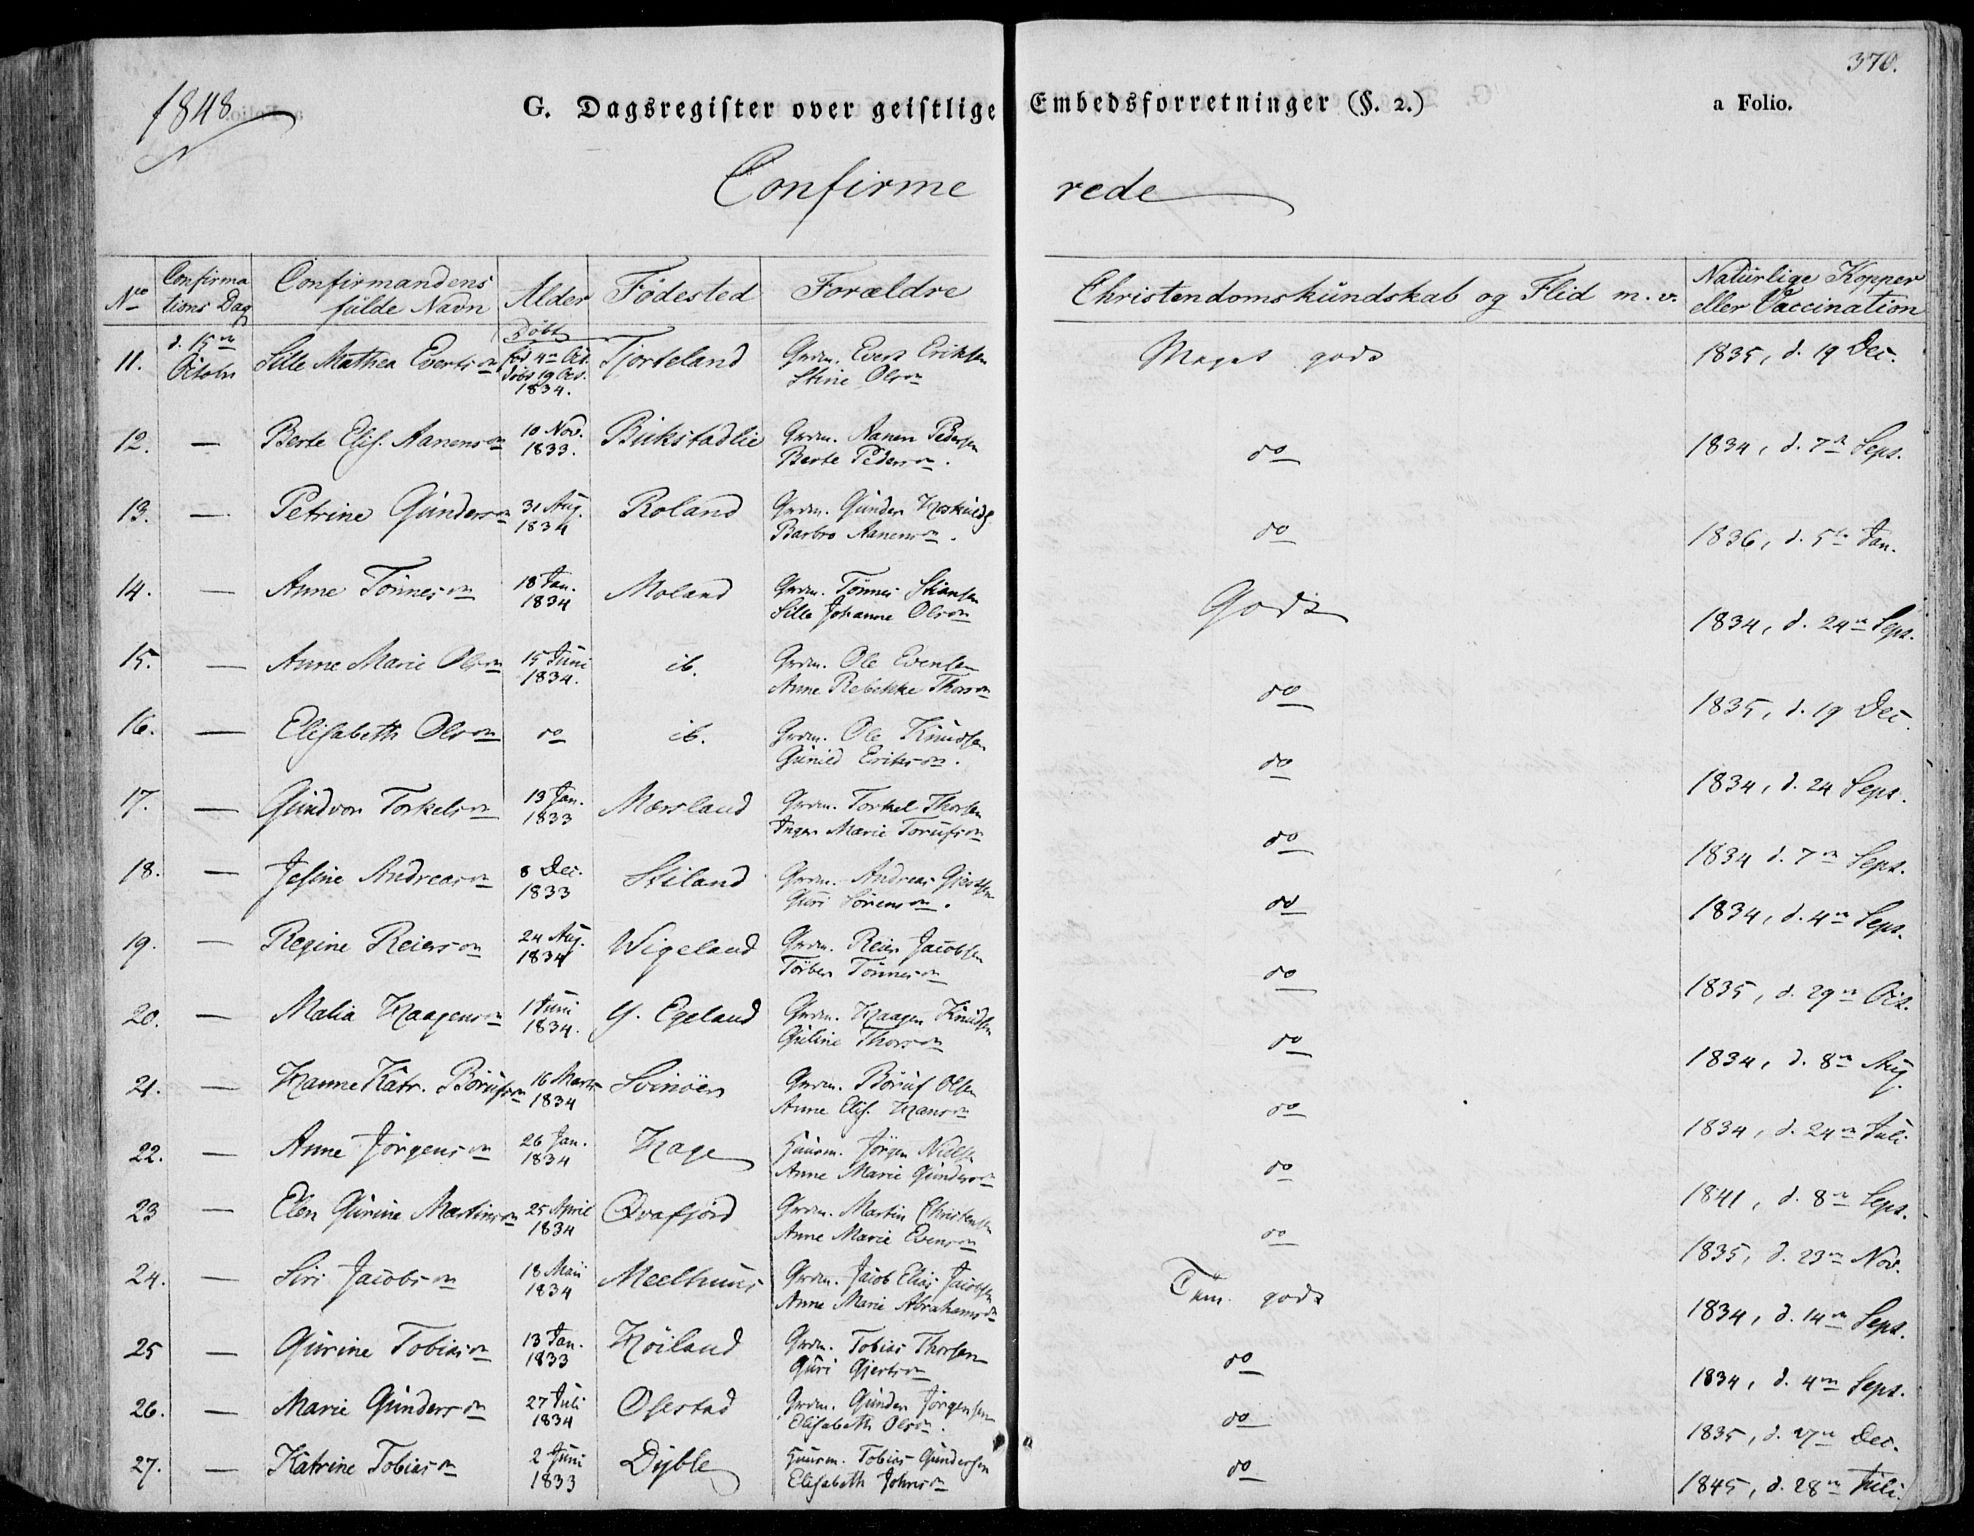 370.
1848.
G. Dagsregister over geistlige Embedsforretninger (§. 2.)
a Folio.
Confirmerede
No Confirmations Dag Confirmandens fulde Navn Alder Födested Forældre Christendomskundskab og Flid m. v. Naturlige Kopper eller Vaccination
Döbt
11. d. 15n Octobr Sille Mathea Everts on fød 4n Oct. döbt 19 Oct. 1834. Tjorteland Grdm. Evert Eriksen Stine Olson Meget godt 1835, d. 19 Dec.
12. — Berte Elis. Aanenson 10 Nov. 1833. Birkstadlie Grdm. Aanen Pedersen Berte Pederson. do 1834, d. 7n Sept.
13. — Petrine Gunderson 31 Aug. 1834 Roland Grdm. Gunder Barbro Aanenson. do 1836, d. 5te Jan.
14. — Anne Tönneson 18 Jan. 1834 Moland Grdm. Tönnes Sille Johanne Olson Godt 1834, d. 24n Sept.
15. — Anne Marie Olson 15 Juni 1834. ib. Grdm. Ole Evensen Anne Rebekke Thorson do 1835, d. 19 Dec.
16. — Elisabeth Olson do ib. Grdm. Ole Knudsen Gunild Erikson. do 1834, d. 24 Sept.
17. — Gundvor Torkelson 13 Jan. 1833 Grdm. Torkel Thorsen Inger Marie do 1834 d. 7n Sept.
18. — Jesine Andreason 8 Dec. 1833 Skiland Grdm. Andreas Gjertsen Guri Sörenson. do 1834, d. 4n Sept.
19. — Regine Reierson 24 Aug. 1834 Wigeland Grdm. Reier Jacobsen Torbor Tönneson do 1835, d. 29n Oct.
20. — Malia Haagenson 1 Juni 1834. Y. Egeland Grdm. Haagen Knudsen Guline Thorson do 1834, d. 8n Aug.
21. — Hanne Katr. Börufson 16 Marts 1834 Svinöer Grdm. Böruf Olsen Anne Elis. Hanson do 1834, d. 24n Juli
22. — Anne Jörgenson 26 Jan. 1834 Hage Huusm. Jörgen Nielsen Anne Marie Gunderson do 1841, d. 8n Sept.
23 — Elen Gurine Martinson 25 April 1834 Qvafjord Grdm. Martin Christensen Anne Marie Evenson do 1835, d. 23n Nov.
24. — Siri Jacobson 18 Maii 1834 Meelhuus Grdm. Jacob Elias Jacobsen Anne Marie Abrahamson Tem. godt 1834, d. 14n Sept.
25 — Gurine Tobiason 13 Jan. 1833 Höiland Grdm. Tobias Thorsen Guri Gjertson do 1834, d. 4n Sept.
26. — Marie Gunderson 27 Juli 1834 Osestad Grdm. Gunder Jörgensen Elisabeth Olson. do 1835, d. 27n Dec.
27. — Katrine Tobiason 2 Juni 1833 Dyble Huusm. Tobias Gundersen Elisabeth Johnson do 1845, d. 28n Juli.